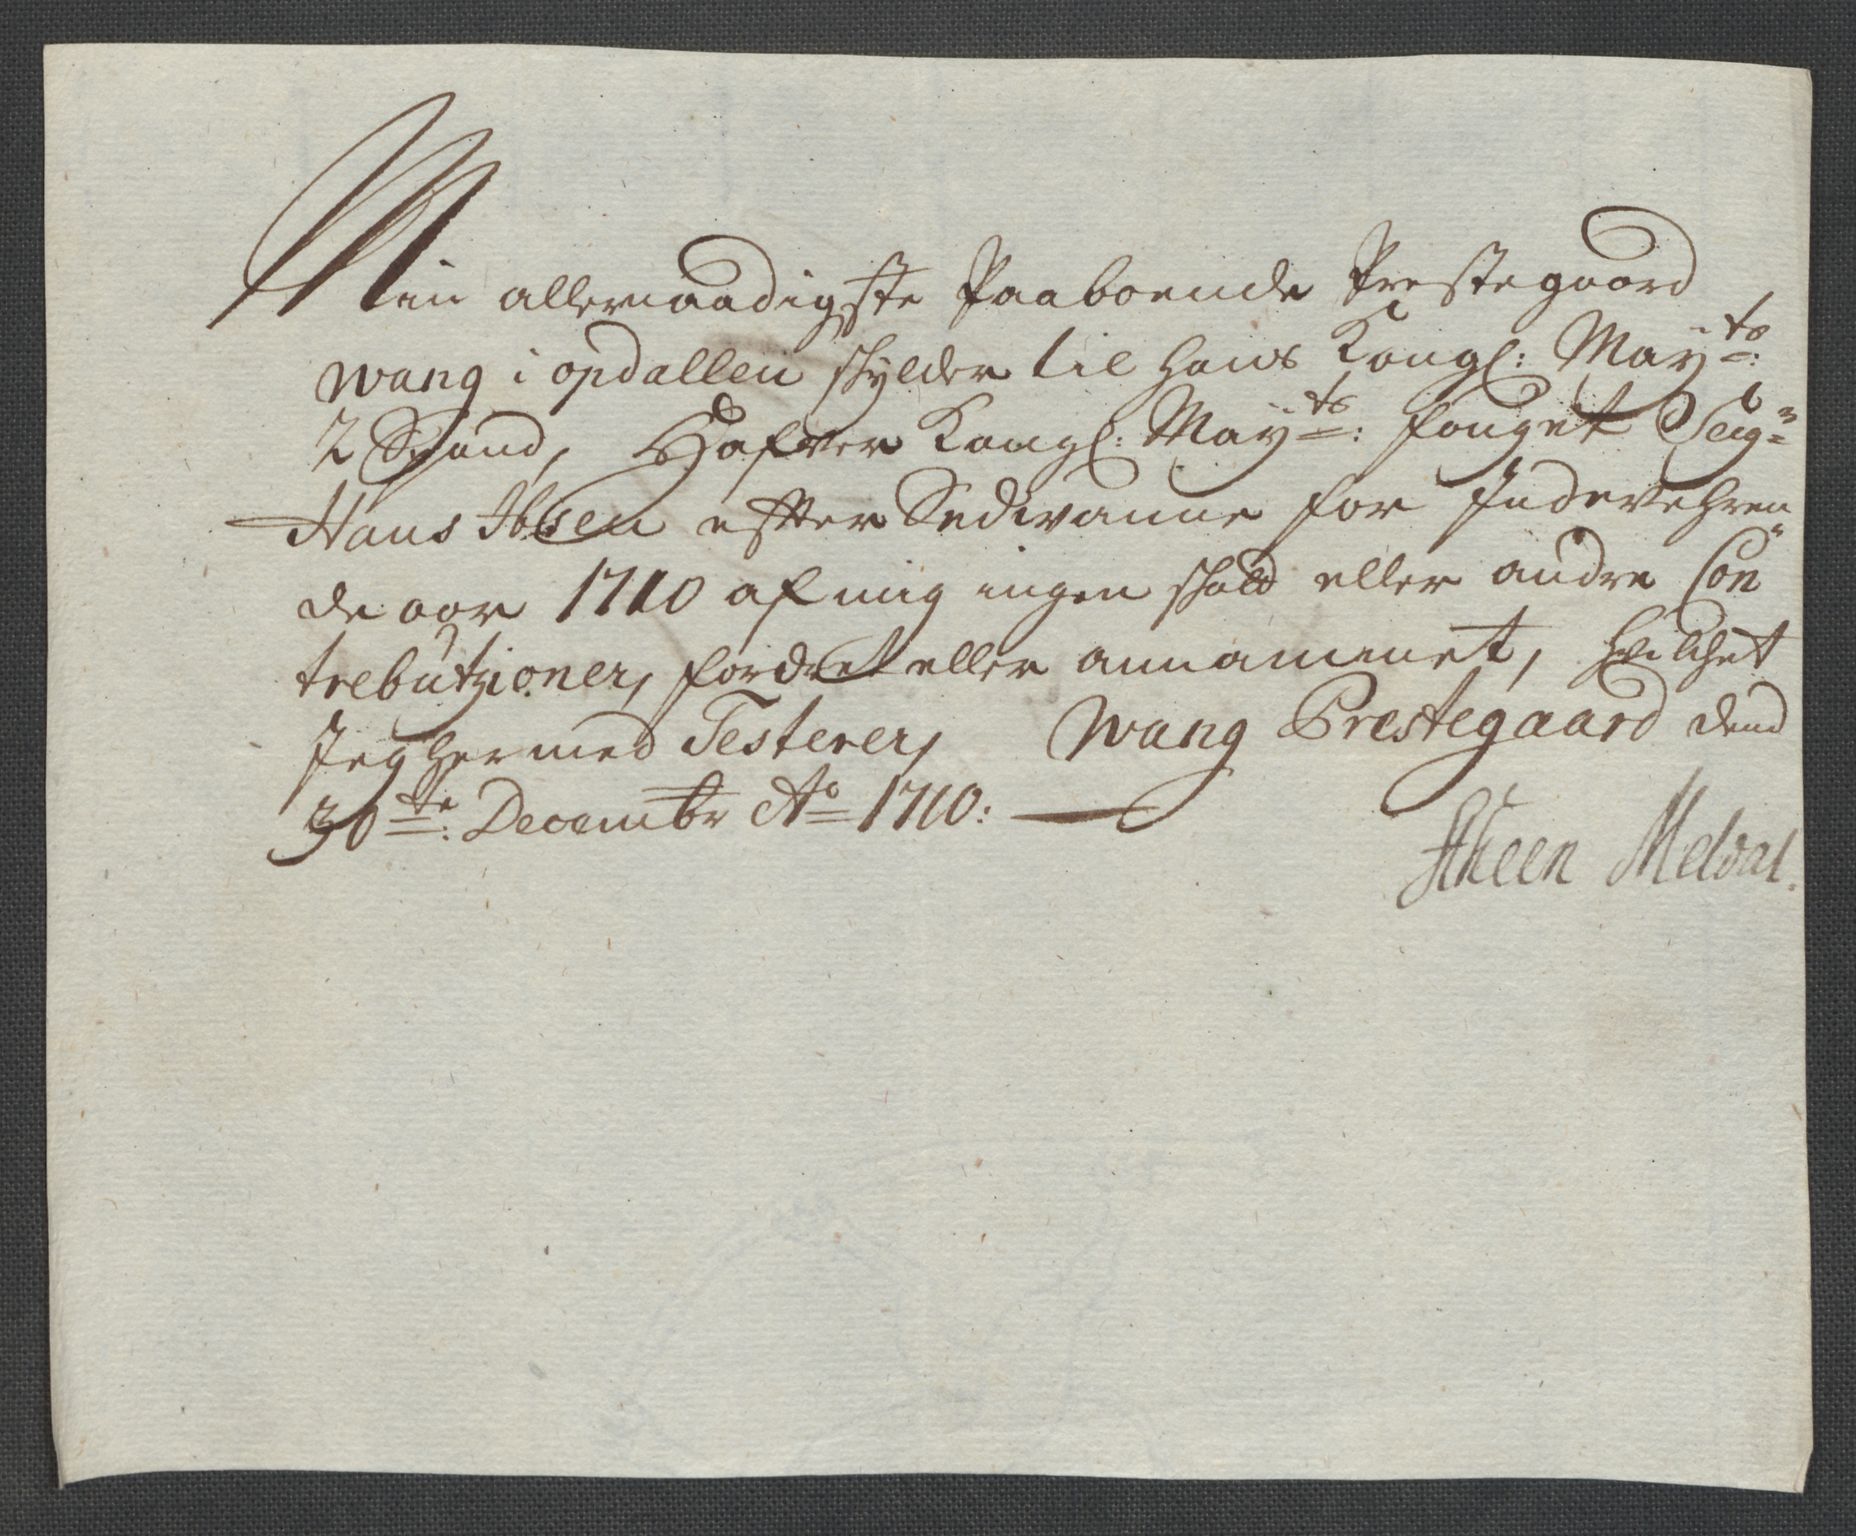 Min allernaadigste Paaboende Prestegaard
wang i opdallen skylder til hans Kongl: May:ts:
2 Spand, Hafver Kongl: May:ts: fouget Seig:r
Hans Ibsen efter Sedwanne for Indeværen
de aar 1710 af mig ingen skatt eller andre Con
trebutzioner, fordret eller annammet, hvilchet
Jeg hermed Testerer, Wang Præstegaard dend
30:te: Decembr Ao 1710:
Melval.